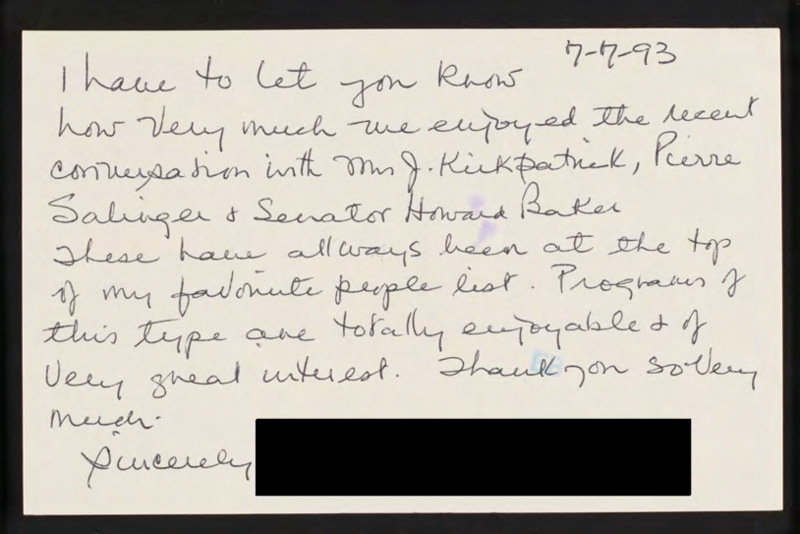 7-7-93
I have to let you know
how very much we enjoyed the recent
conversation with Mrs J. Kirkpatrick, Pierre
Salinger & Senator Howard Baker
These have allways been at the top
of my favorite people list. Programs of
this type are totally enjoyable & of
very great interest. Thank you so very
much.
Sincerely